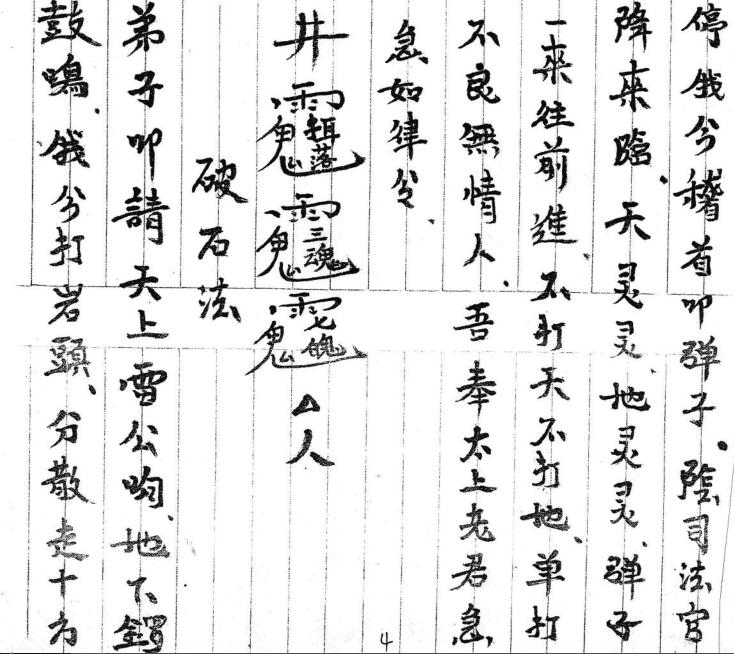 停餓兮稽首叩弹子。陰司法官
降来臨、天灵灵、地灵灵、弹子
一來往前進、不打天不打地、单打
不良無情人、吾奉太上老君急、
急如律令、
井 三魂 七魄 △人
破石法
弟子叩請天上雷公、地下
鼓鳴、餓兮打岩頭、分散走十方
4